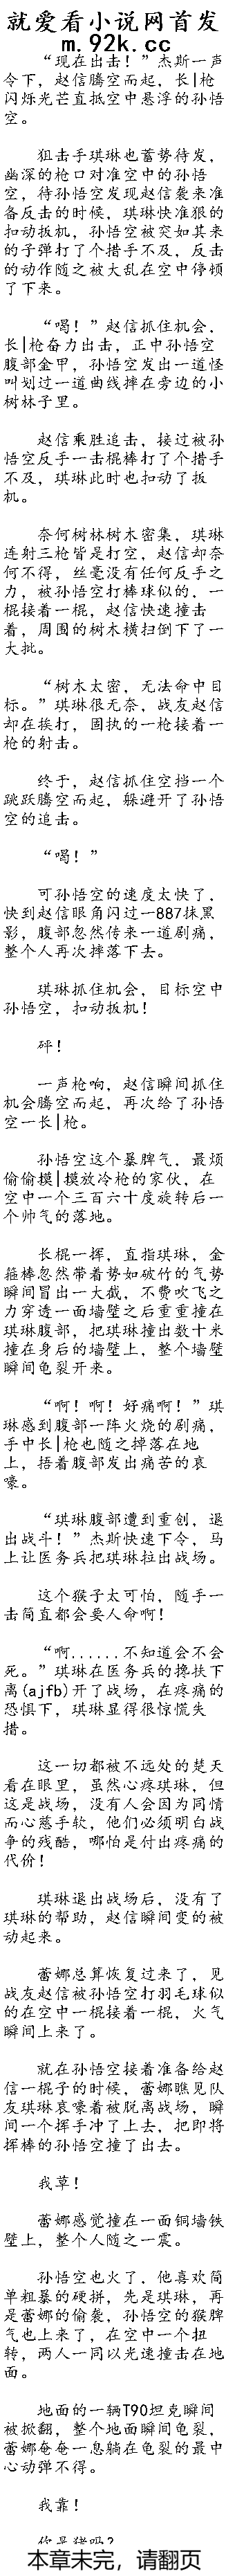 就爱看小说网首发
m.92k.cc
“现在出击！”杰斯一声
令下，赵信腾空而起，长|枪
闪烁光芒直抵空中悬浮的孙悟
空。
狙击手琪琳也蓄势待发，
幽深的枪口对准空中的孙悟
空，待孙悟空发现赵信袭来准
备反击的时候，琪琳快准狠的
扣动扳机，孙悟空被突如其来
的子弹打了个措手不及，反击
的动作随之被大乱在空中停顿
了下来。
“喝！”赵信抓住机会，
长|枪奋力出击，正中孙悟空
腹部金甲，孙悟空发出一道怪
叫划过一道曲线摔在旁边的小
树林子里。
赵信乘胜追击，接过被孙
悟空反手一击棍棒打了个措手
不及，琪琳此时也扣动了扳
机。
奈何树林树木密集，琪琳
连射三枪皆是打空，赵信却奈
何不得，丝毫没有任何反手之
力，被孙悟空打棒球似的，一
棍接着一棍，赵信快速撞击
着，周围的树木横扫倒下了一
大批。
“树木太密，无法命中目
标。”琪琳很无奈，战友赵信
却在挨打，固执的一枪接着一
枪的射击。
终于，赵信抓住空挡一个
跳跃腾空而起，躲避开了孙悟
空的追击。
“喝！”
可孙悟空的速度太快了，
快到赵信眼角闪过一887抹黑
影，腹部忽然传来一道剧痛，
整个人再次摔落下去。
琪琳抓住机会，目标空中
孙悟空，扣动扳机！
砰！
一声枪响，赵信瞬间抓住
机会腾空而起，再次给了孙悟
空一长|枪。
孙悟空这个暴脾气，最烦
偷偷摸|摸放冷枪的家伙，在
空中一个三百六十度旋转后一
个帅气的落地。
长棍一挥，直指琪琳，金
箍棒忽然带着势如破竹的气势
瞬间冒出一大截，不费吹飞之
力穿透一面墙壁之后重重撞在
琪琳腹部，把琪琳撞出数十米
撞在身后的墙壁上，整个墙壁
瞬间龟裂开来。
“啊！啊！好痛啊！”琪
琳感到腹部一阵火烧的剧痛，
手中长|枪也随之掉落在地
上，捂着腹部发出痛苦的哀
嚎。
“琪琳腹部遭到重创，退
出战斗！”杰斯快速下令，马
上让医务兵把琪琳拉出战场。
这个猴子太可怕，随手一
击简直都会要人命啊！
“啊......不知道会不会
死。”琪琳在医务兵的搀扶下
离(ajfb)开了战场，在疼痛的
恐惧下，琪琳显得很惊慌失
措。
这一切都被不远处的楚天
看在眼里，虽然心疼琪琳，但
这是战场，没有人会因为同情
而心慈手软，他们必须明白战
争的残酷，哪怕是付出疼痛的
代价！
琪琳退出战场后，没有了
琪琳的帮助，赵信瞬间变的被
动起来。
蕾娜总算恢复过来了，见
战友赵信被孙悟空打羽毛球似
的在空中一棍接着一棍，火气
瞬间上来了。
就在孙悟空接着准备给赵
信一棍子的时候，蕾娜瞧见队
友琪琳哀嚎着被脱离战场，瞬
间一个挥手冲了上去，把即将
挥棒的孙悟空撞了出去。
我草！
蕾娜感觉撞在一面铜墙铁
壁上，整个人随之一震。
孙悟空也火了，他喜欢简
单粗暴的硬拼，先是琪琳，再
是蕾娜的偷袭，孙悟空的猴脾
气也上来了，在空中一个扭
转，两人一同以光速撞击在地
面。
地面的一辆T90坦克瞬间
被掀翻，整个地面瞬间龟裂，
蕾娜奄奄一息躺在龟裂的最中
心动弹不得。
我靠！
你是猪吗？
本章未完，请翻页